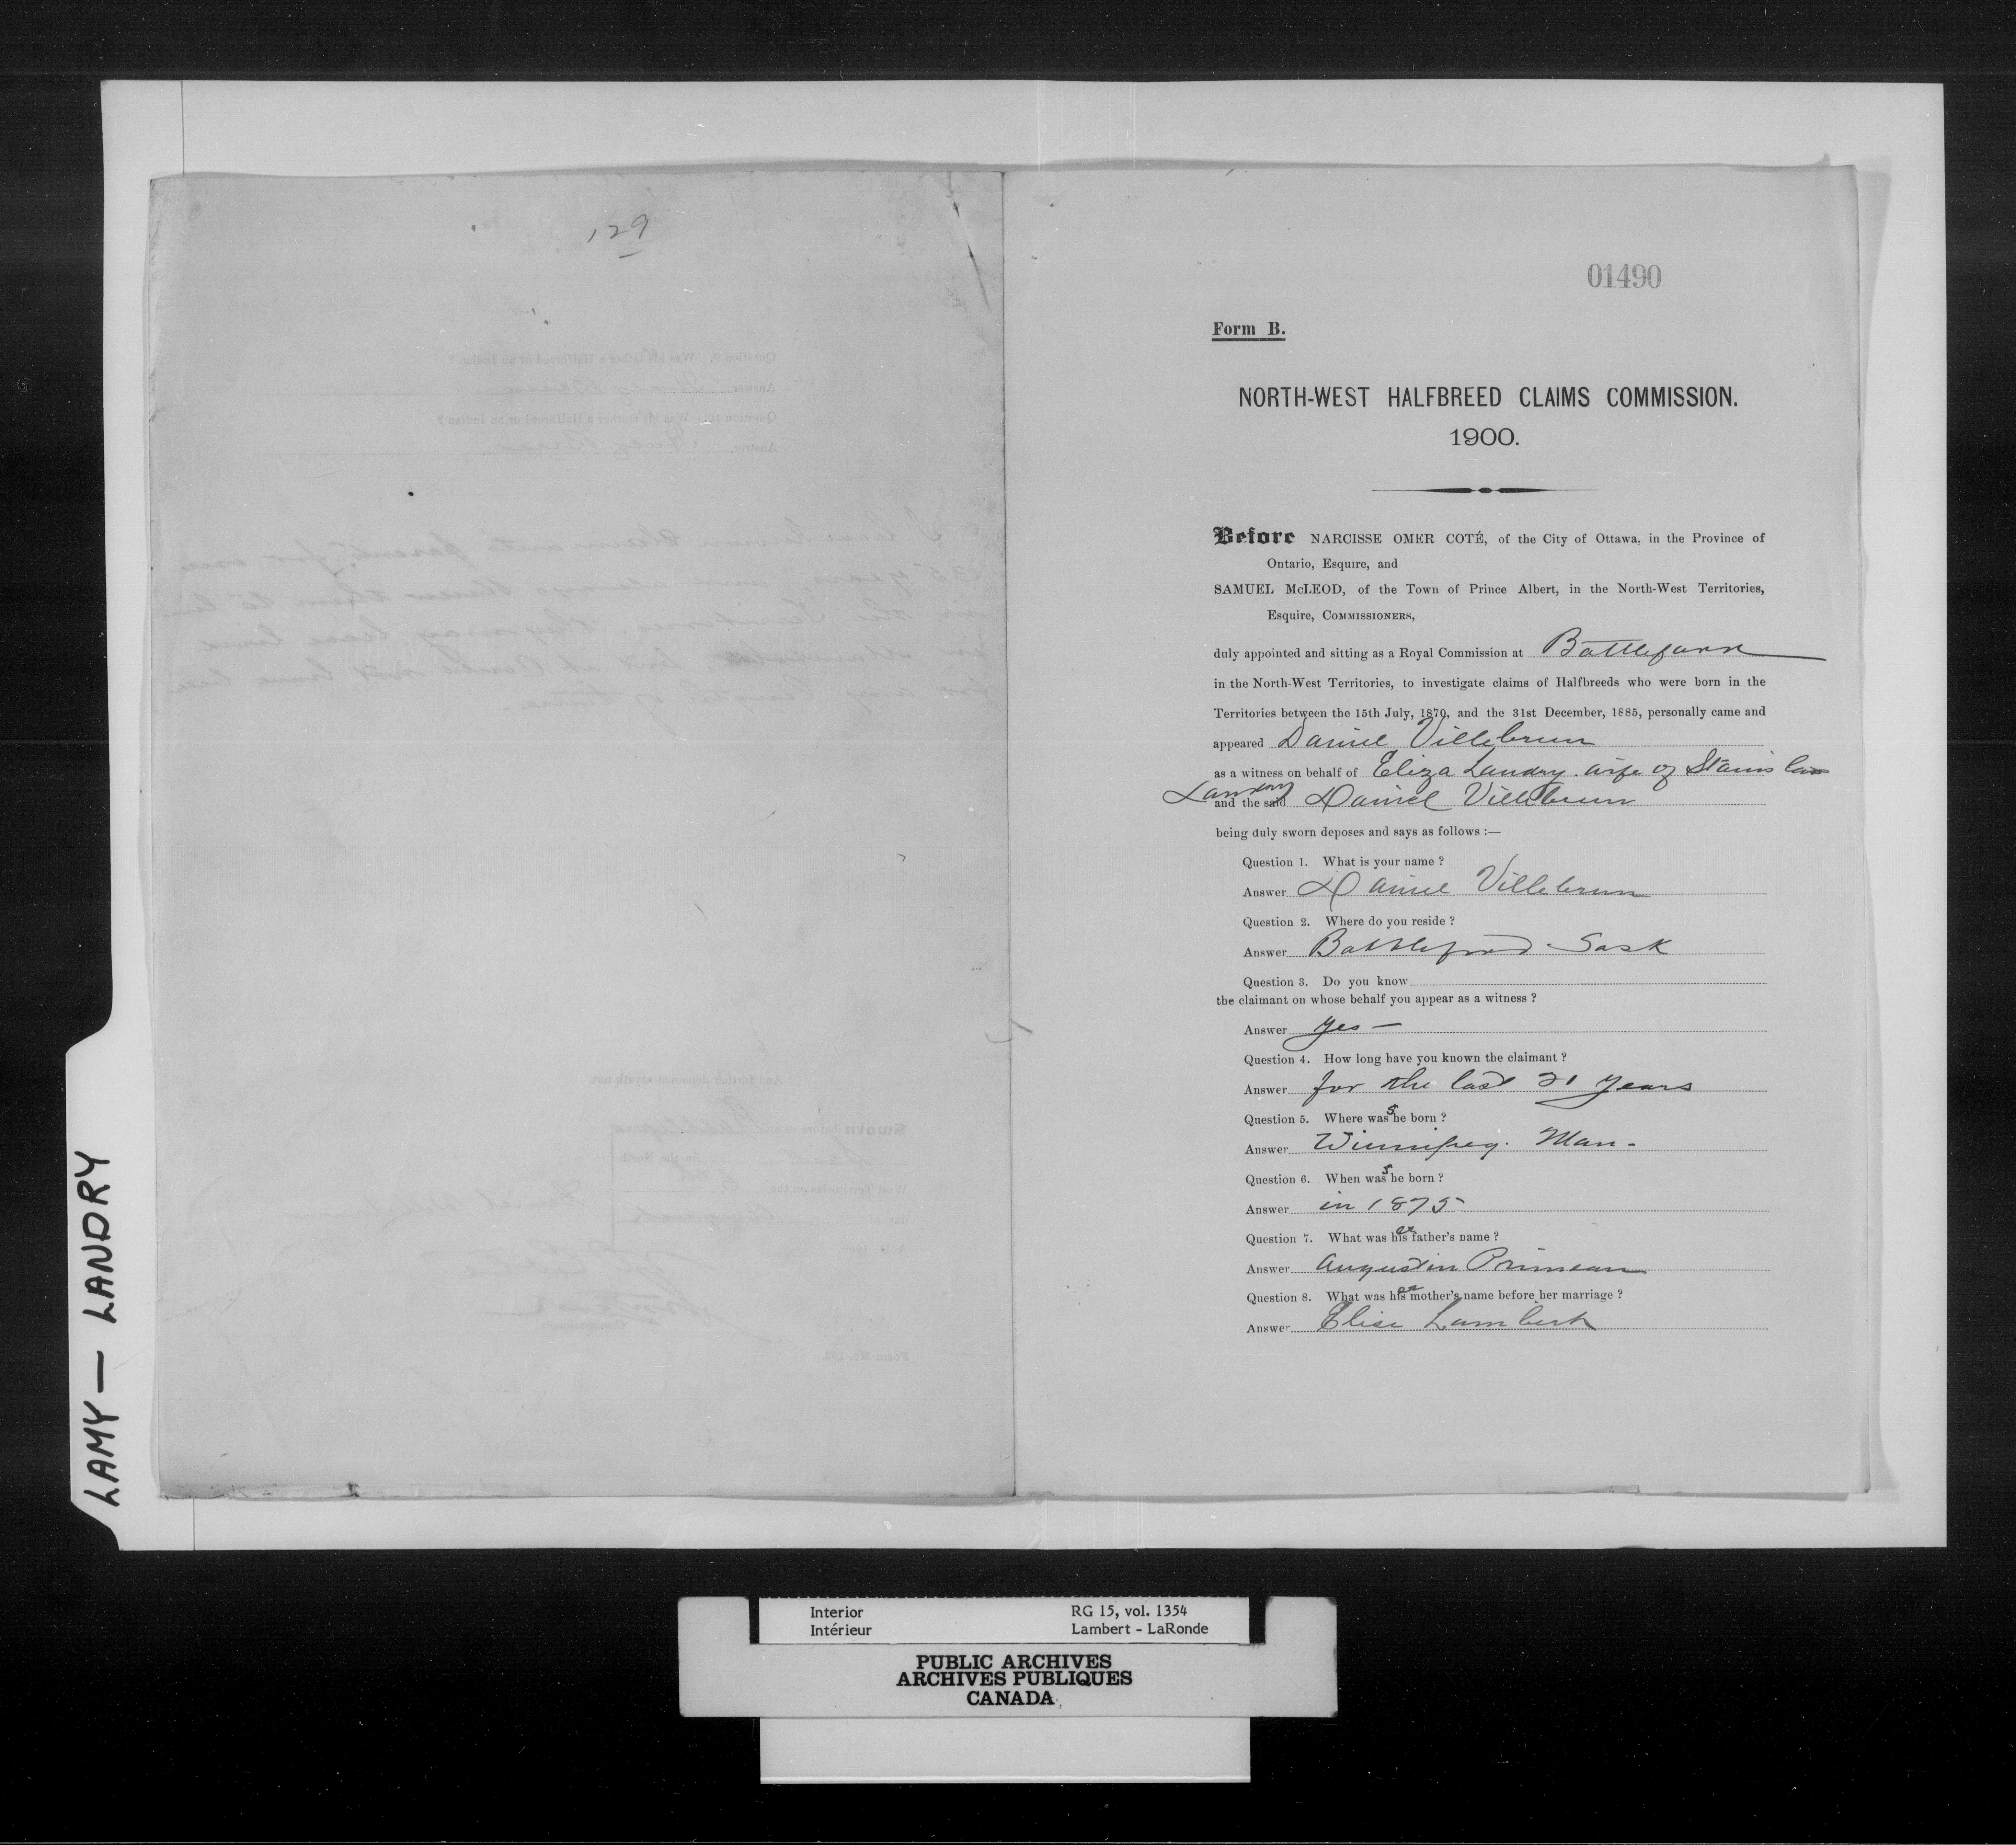 129
01490
Form B.
NORTH-WEST HALFBREED CLAIMS COMMISSION.
1900.
Before NARCISSE OMER COTÉ, of the City of Ottawa, in the Province of
Ontario, Esquire, and
SAMUEL McLEOD, of the Town of Prince Albert, in the North-West Territories,
Esquire, COMMISSIONERS,
duly appointed and sitting as a Royal Commission at Battleford
in the North-West Territories, to investigate claims of Halfbreeds who were born in the
Territories between the 15th July, 1870, and the 31st December, 1885, personally came and
appeared Daniel Villebrun
as a witness on behalf of Eliza Landry wife of Stanislas
Landry and the said Daniel Villebrun
being duly sworn deposes and says as follows :—
Question 1. What is your name ?
Answer Daniel Villebrun
Question 2. Where do you reside ?
Answer Battleford Sask
Question 3. Do you know
the claimant on whose behalf you appear as a witness ?
Answer yes —
Question 4. How long have you known the claimant ?
Answer for the last 21 years
Question 5. Where was she born ?
Answer Winnipeg. Man.
Question 6. When was she born ?
Answer in 1875
Question 7. What was her father's name ?
Answer Augustin Primeau
Question 8. What was her mother's name before her marriage ?
Answer Elise Lambert
LAMY — LANDRY
Interior RG 15, vol. 1354
Intérieur Lambert - LaRonde
PUBLIC ARCHIVES
ARCHIVES PUBLIQUES
CANADA